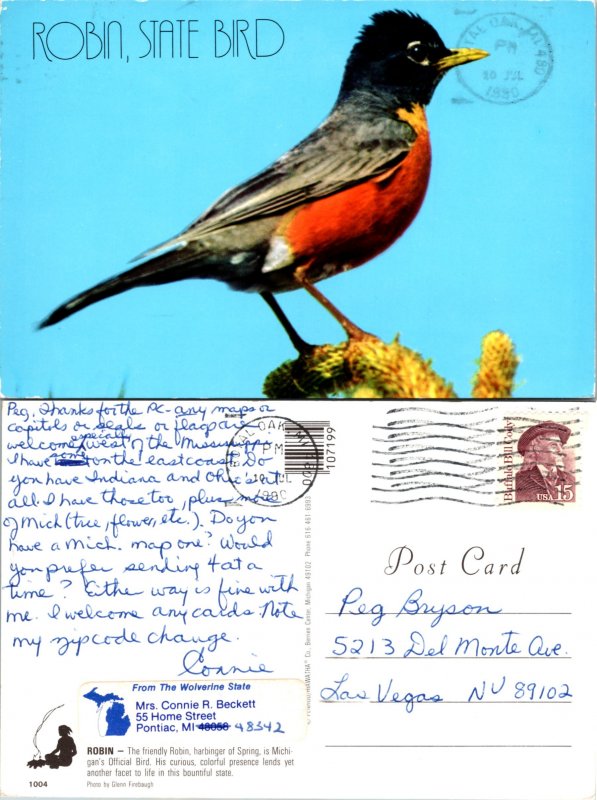 ROBIN, STATE BIRD
ROYAL OAK, MI 480
PM
10 JUL
1990
Peg, Thanks for the PC- any maps or
capitols or seals or flag are
welcome, especially west of the Mississippi.
I have some on the east coast. Do
you have Indiana and Ohio's at
all. I have those too, plus more
of Mich (tree, flower, etc.). Do you
have a Mich. map one? Would
you prefer sending 4 at a
time? Either way is fine with
me. I welcome any cards. Note
my zipcode change.
Connie
From The Wolverine State
Mrs. Connie R. Beckett
55 Home Street
Pontiac, MI 48058 48342
ROBIN — The friendly Robin, harbinger of Spring, is Michi-
gan's Official Bird. His curious, colorful presence lends yet
another facet to life in this bountiful state.
1004
Photo by Glenn Firebaugh
OAK, MI
PM
10 JUL
1990
107199
HIAWATHA Co., Berrien Center, Michigan 49102 Phone 616-461-6993
Buffalo Bill Cody
USA 15
Post Card
Peg Bryson
5213 Del Monte Ave.
Las Vegas NV 89102